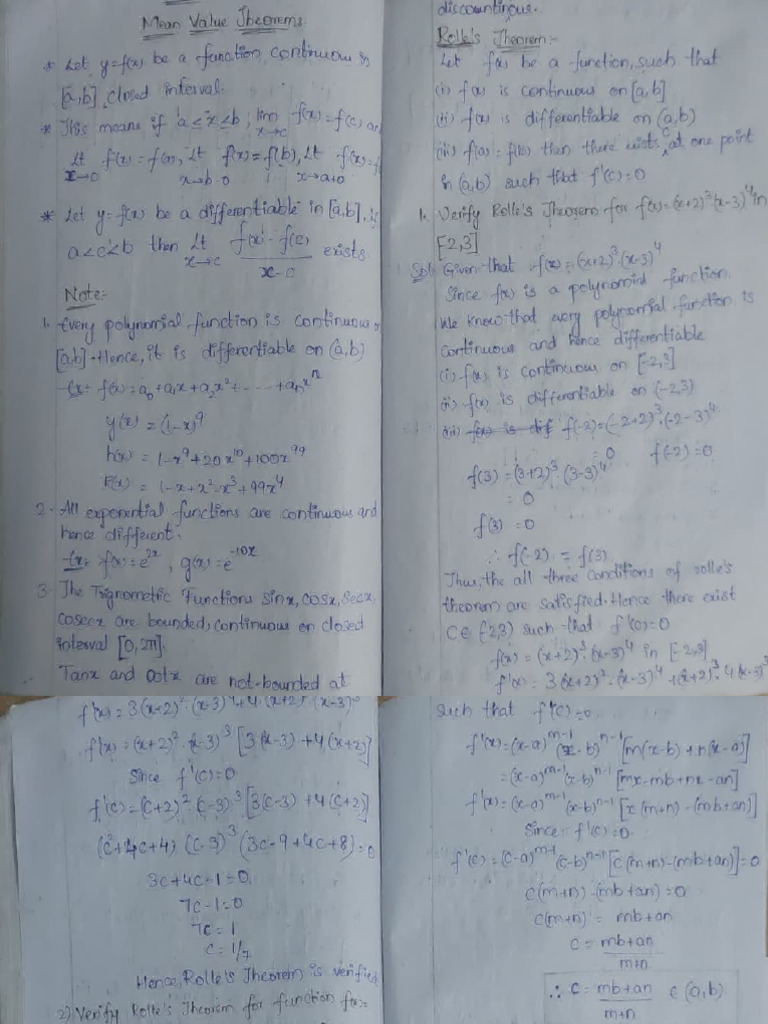 Mean Value Theorems
* Let y=f(x) be a function, continuous in
[a,b] closed interval.
* This means if a≤x≤b ; lim x→c f(x)=f(c) and
Lt x→0 f(x)=f(a), Lt x→b-0 f(x)=f(b), Lt x→a+0 f(x)=f
* Let y=f(x) be a differentiable in [a,b], if
a<c<b then Lt x→c f(x)-f(c)/x-0 exists
Note:-
1. Every polynomial function is continuous on
[a,b]. Hence, it is differentiable on (a,b)
Ex:- f(x)=a0+a1x+a2x²+-----+anxⁿ
y(x) = (1-x)⁹
h(x) = 1-x⁹+20x¹⁰+100x⁹⁹
F(x) = 1-x+x²-x³+99x⁴
2. All exponential functions are continuous and
hence different.
Ex:- f(x)=e²ˣ, g(x)=e⁻¹⁰ˣ
3. The Trignometric Functions sinx, cosx, secx,
cosecx are bounded, continuous on closed
interval [0,2π].
Tanx and cotx are not-bounded at
discountinous..
Rolle's Theorem:-
Let f(x) be a function, such that
(i) f(x) is continuous on [a,b]
(ii) f(x) is differentiable on (a,b)
(iii) f(a)=f(b) then there exists c at one point
in (a,b) such that f'(c)=0
1. Verify Rolle's Theorem for f(x)=(x+2)³(x-3)⁴ in
[-2,3]
Sol: Given that :- f(x)=(x+2)³.(x-3)⁴
Since f(x) is a polynomial function.
We know that every polynomial function is
continuous and hence differentiable
(i) f(x) is continuous on [-2,3]
(ii) f(x) is differentiable on (-2,3)
(iii) f(x) is dif f(-2)=(-2+2)³.(-2-3)⁴
=0 f(-2)=0
f(3)=(3+2)³.(3-3)⁴
= 0
f(3) =0
∴ f(-2) = f(3)
Thus, the all three conditions of rolle's
theorem are satisfied. Hence there exist
C∈(-2,3) such that f'(c)=0
f(x) = (x+2)³.(x-3)⁴ in [-2,3]
f'(x) = 3(x+2)².(x-3)⁴+(x+2)³.4(x-3)³
f'(x)=3(x+2)².(x-3)⁴+4.(x+2)³.(x-3)³
f'(x)=(x+2)².(x-3)³[3(x-3)+4(x+2)]
Since f'(c)=0
f'(c)=(c+2)²(c-3)³[3(c-3)+4(c+2)]
(c²+4c+4)(c-3)³(3c-9+4c+8)=0
3c+4c-1=0.
7c-1=0
7c=1
c=1/7
Hence, Rolle's Theorem is verified
2) Verify Rolle's Theorem for function f(x)=
such that f'(c)=0
f'(x)=(x-a)ᵐ⁻¹(x-b)ⁿ⁻¹[m(x-b)+n(x-a)]
=(x-a)ᵐ⁻¹(x-b)ⁿ⁻¹[mx-mb+nx-an]
f'(x)=(x-a)ᵐ⁻¹(x-b)ⁿ⁻¹[x(m+n)-(mb+an)]
Since f'(c)=0.
f'(c)=(c-a)ᵐ⁻¹(c-b)ⁿ⁻¹[c(m+n)-(mb+an)]=0
c(m+n)-(mb+an)=0
c(m+n) = mb+an
c = mb+an/m+n
∴ c = mb+an/m+n ∈ (a,b)